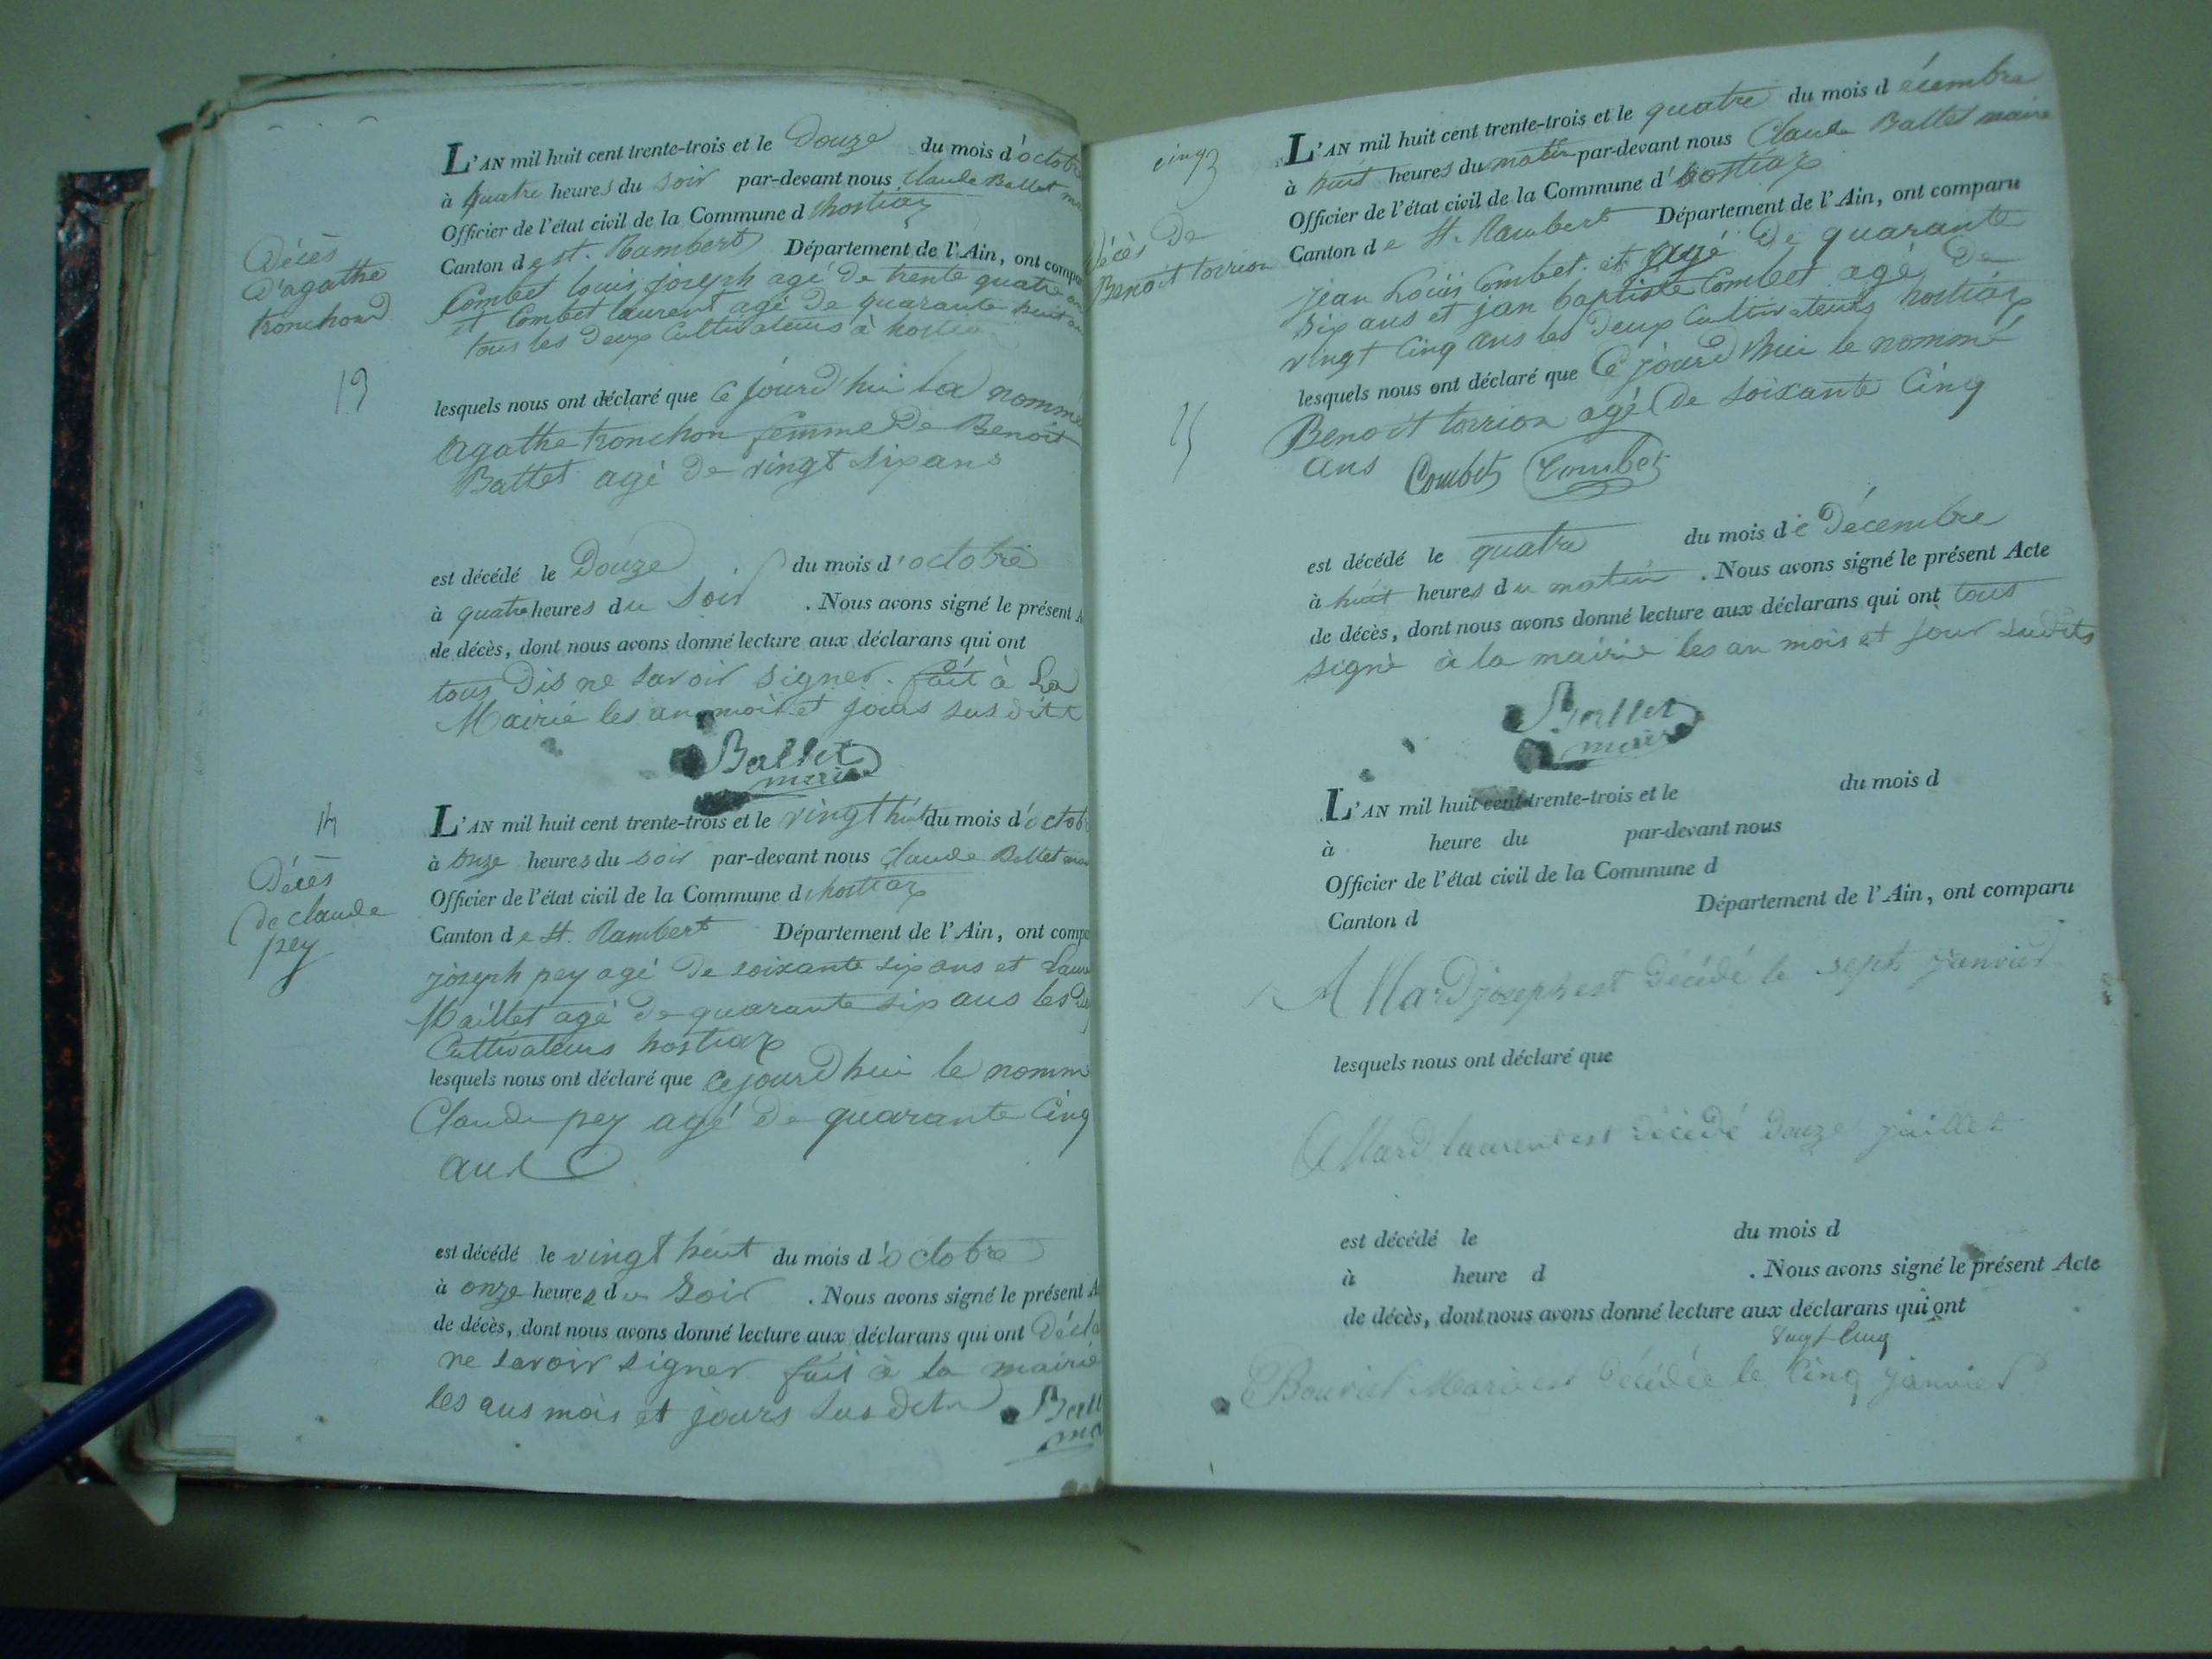 L'AN mil huit cent trente-trois et le Douze du mois d'octobre
à quatre heures du soir par-devant nous Claude Ballet
Officier de l'état civil de la Commune d'hostiaz
Canton de St. Rambert Département de l'Ain, ont compa
Combet louis joseph agé de trente quatre ans
et Combet laurent agé de quarante huit ans
tous les deux Cultivateurs à hostiaz
Décès
D'agathe
tronchond
13
lesquels nous ont déclaré que Ce jourd'hui la nommé
Agathe tronchon femme De Benoit
Ballet agé De vingt six ans
est décédé le Douze du mois d'octobre
à quatre heures du Soir . Nous avons signé le présent A
de décès, dont nous avons donné lecture aux déclarans qui ont
tous Dis ne Savoir Signer. fait à La
Mairie les an mois et jours sus dits
Ballet
maire
14
Décès
de claude
pey
L'AN mil huit cent trente-trois et le vingt huit du mois d'octobre
à onze heures du soir par-devant nous Claude Ballet
Officier de l'état civil de la Commune d'hostiaz
Canton de St. Rambert Département de l'Ain, ont compa
joseph pey agé De soixante six ans et Laur
Maillet agé de quarante six ans les De
Cultivateurs hostiaz
lesquels nous ont déclaré que Ce jourd'hui le nomm
Claude pey agé De quarante Cinq
ans
est décédé le vingt huit du mois d'octobre
à onze heures du Soir . Nous avons signé le présent A
de décès, dont nous avons donné lecture aux déclarans qui ont Décla
ne savoir signer fait à la mairie
les ans mois et jours Sus dits
Ball
ma
cinq
Décès De
Benoit torrion
15
L'AN mil huit cent trente-trois et le quatre du mois d écembre
à huit heures du matin par-devant nous Claude Ballet maire
Officier de l'état civil de la Commune d'hostiaz
Canton de St. Rambert Département de l'Ain, ont comparu
jean Louis Combet et agé De quarante
six ans et jan baptiste Combet agé De
vingt Cinq ans les Deux Cultivateurs hostiaz
lesquels nous ont déclaré que Ce jourd'hui le nommé
Benoit torrion agé De soixante Cinq
ans Combet Combet
est décédé le quatre du mois de Décembre
à huit heures du matin . Nous avons signé le présent Acte
de décès, dont nous avons donné lecture aux déclarans qui ont tous
signé à la mairie les an mois et jour sudits
Ballet
maire
L'AN mil huit cent trente-trois et le du mois d
à heure du par-devant nous
Officier de l'état civil de la Commune d
Canton d Département de l'Ain, ont comparu
Allard joseph est Décédé le sept janvier
lesquels nous ont déclaré que
Allard laurent est Décédé Douze juillet
est décédé le du mois d
à heure d . Nous avons signé le présent Acte
de décès, dont nous avons donné lecture aux déclarans qui ont
vingt Cinq
Marie est Décédée le Cinq janvier